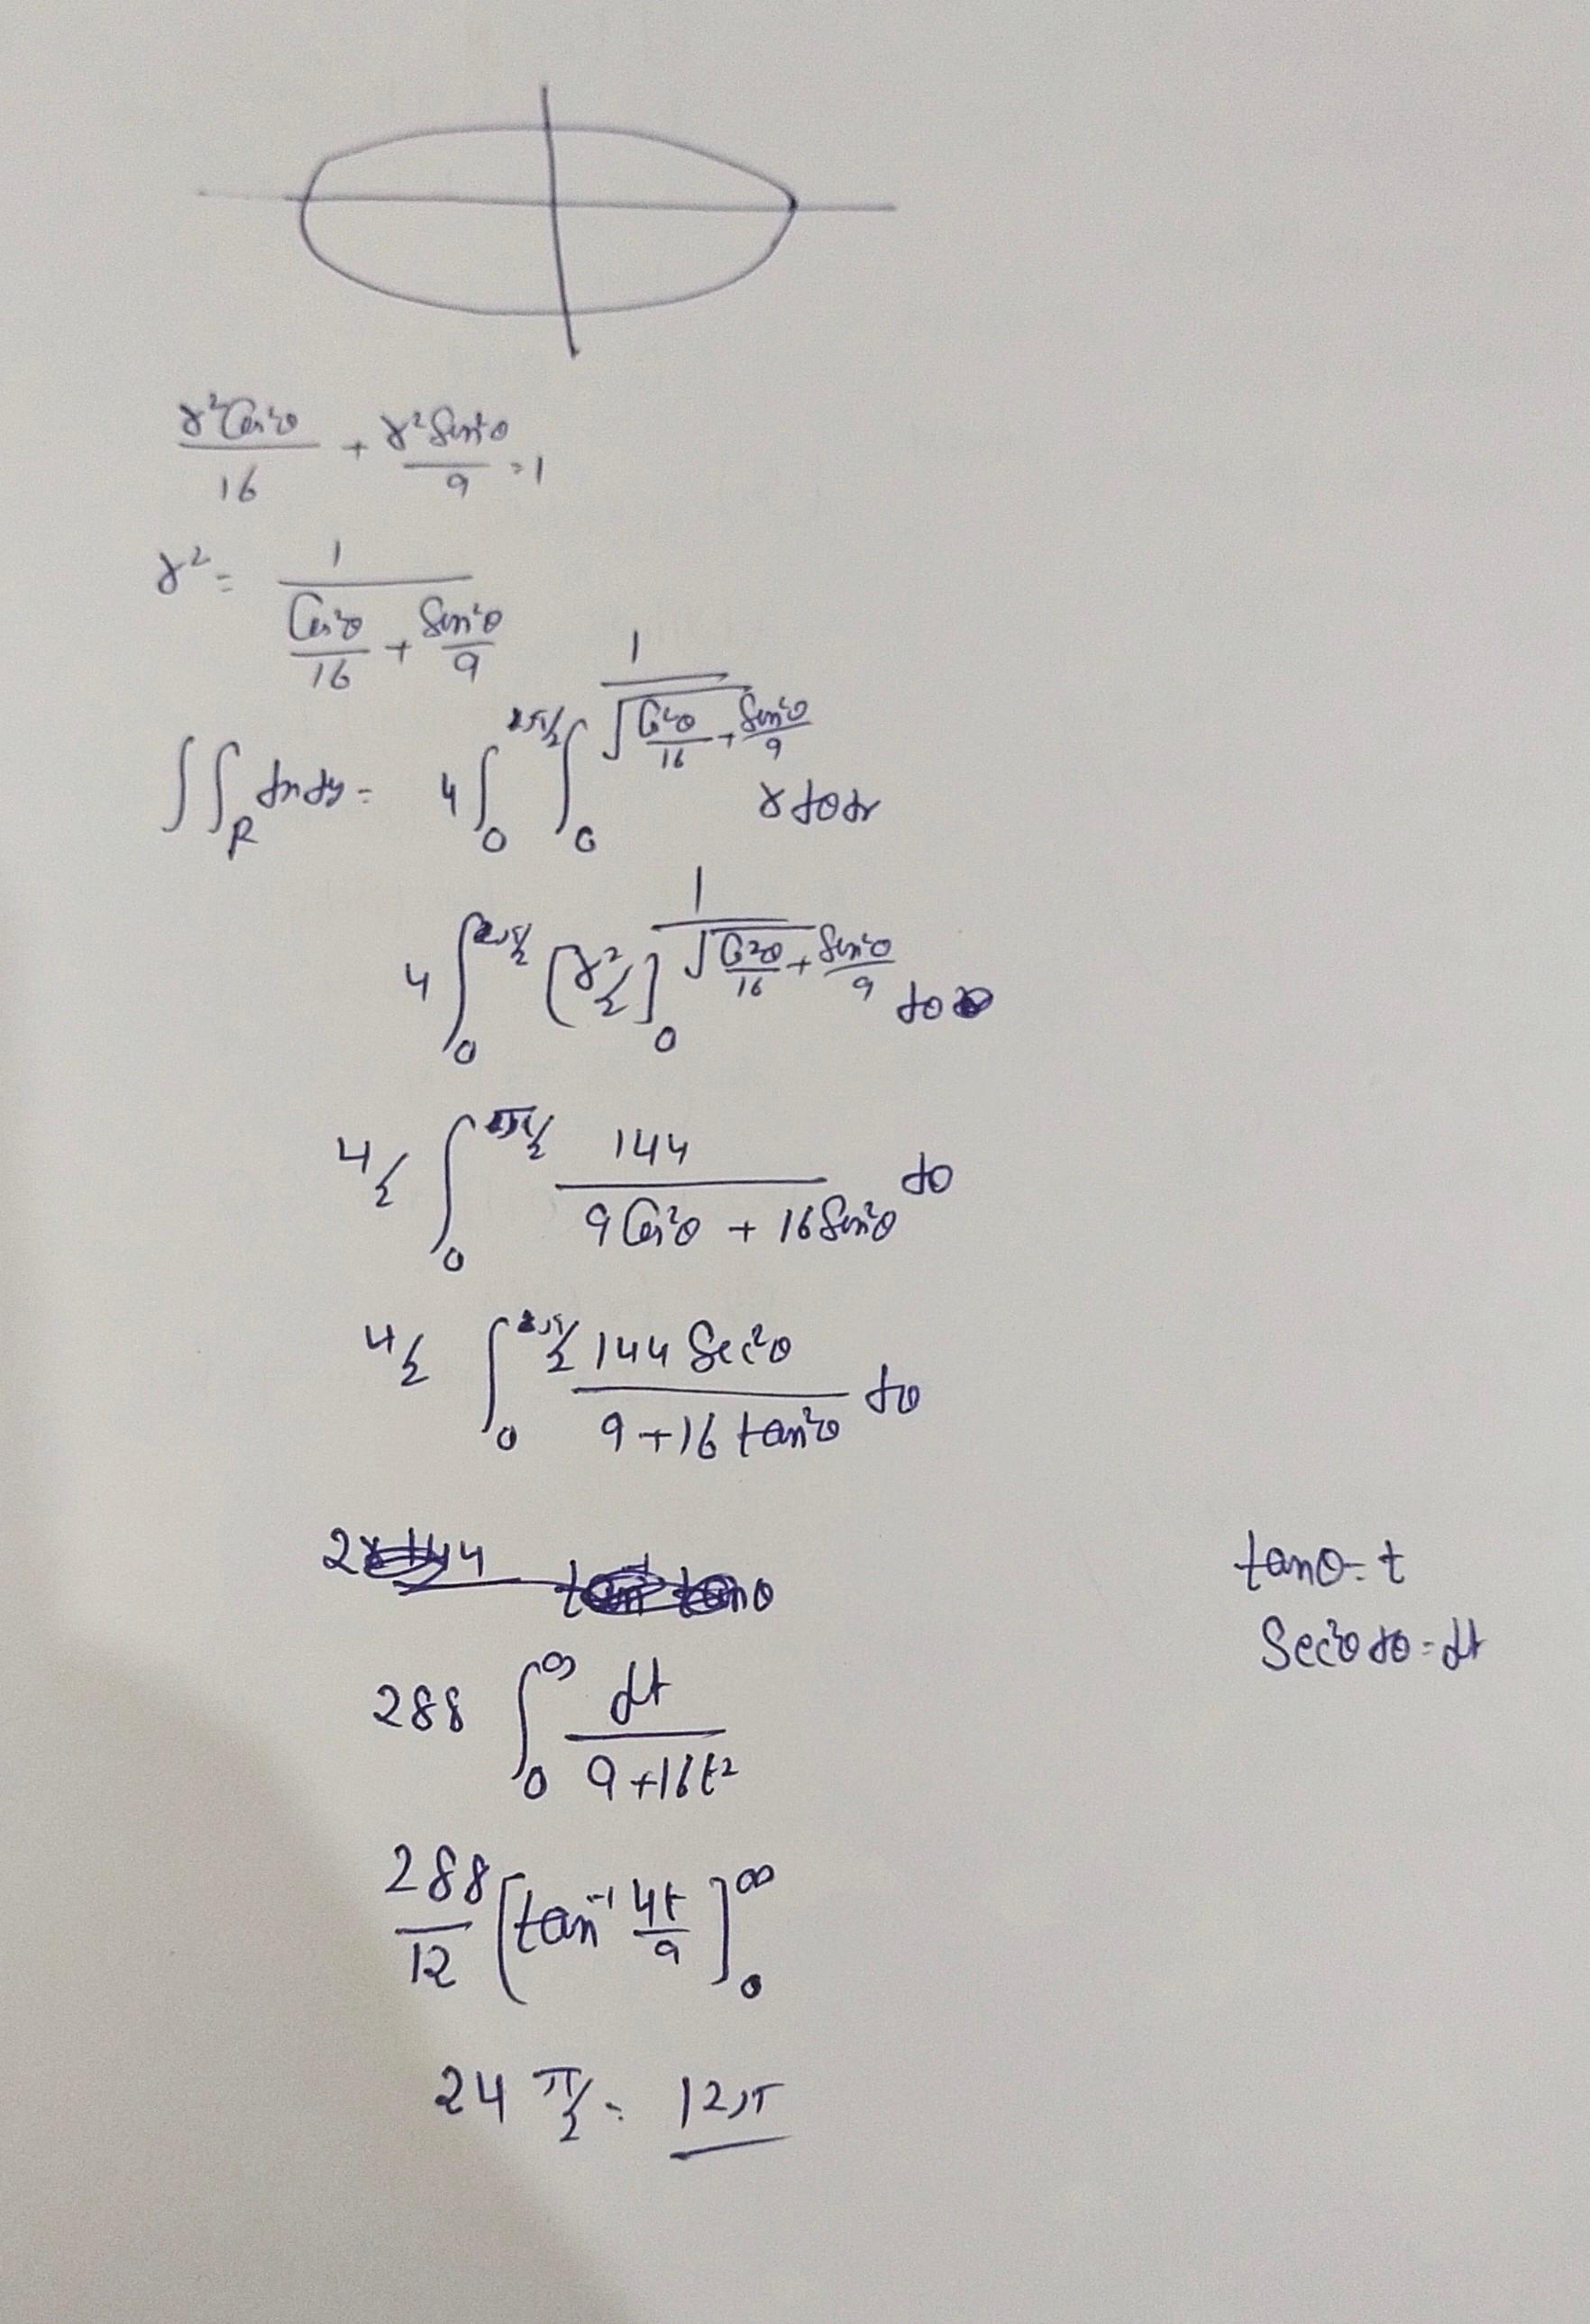 r²Cos²θ/16 + r²Sin²θ/9 = 1
r² = 1/(Cos²θ/16 + Sin²θ/9)
∫∫_R dxdy = 4∫₀^(π/2) ∫₀^(1/√(Cos²θ/16 + Sin²θ/9)) r dθ dr
4∫₀^(π/2) [r²/2]₀^(1/√(Cos²θ/16 + Sin²θ/9)) dθ
4/2 ∫₀^(π/2) 144/(9Cos²θ + 16Sin²θ) dθ
4/2 ∫₀^(π/2) 144 Sec²θ/(9+16 tan²θ) dθ
tanθ = t
Sec²θ dθ = dt
288 ∫₀^∞ dt/(9+16t²)
288/12 [tan⁻¹ 4t/9]₀^∞
24 π/2 = 12π